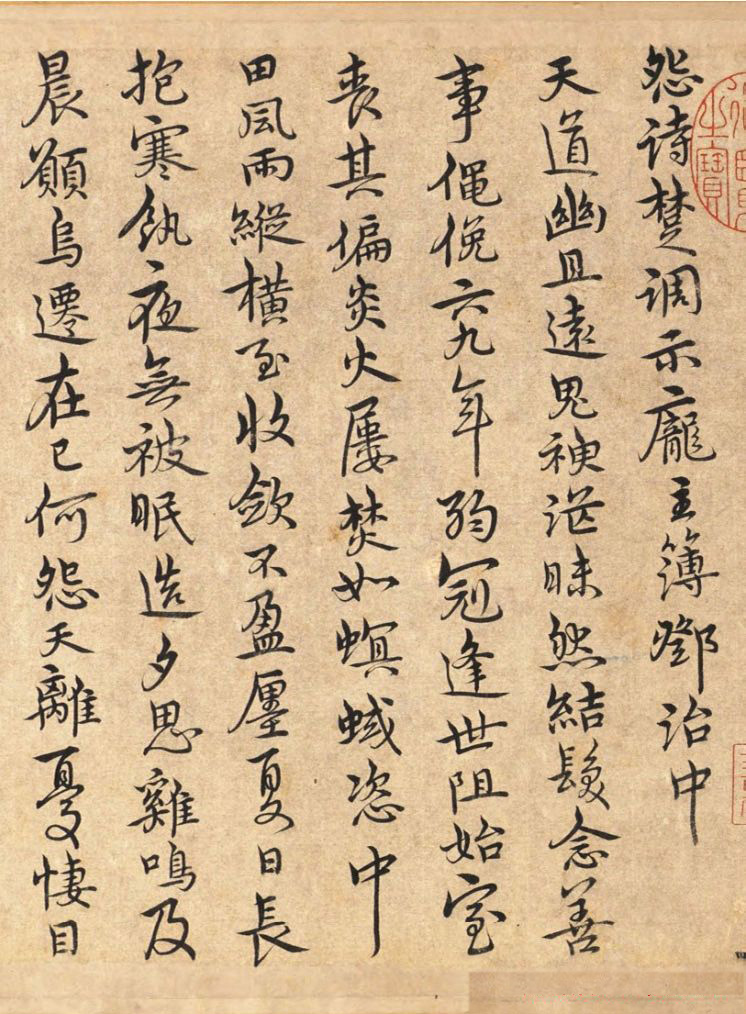 怨诗楚调示龐主簿鄧治中
天道幽且遠鬼神茫昧然結髮念善
事僶俛六九年弱冠逢世阻始室
喪其偏炎火屢焚如螟蜮恣中
田風雨縱橫至收斂不盈廛夏日長
抱寒飢夜無被眠造夕思雞鳴及
晨願烏遷在己何怨天離憂悽目
之寶